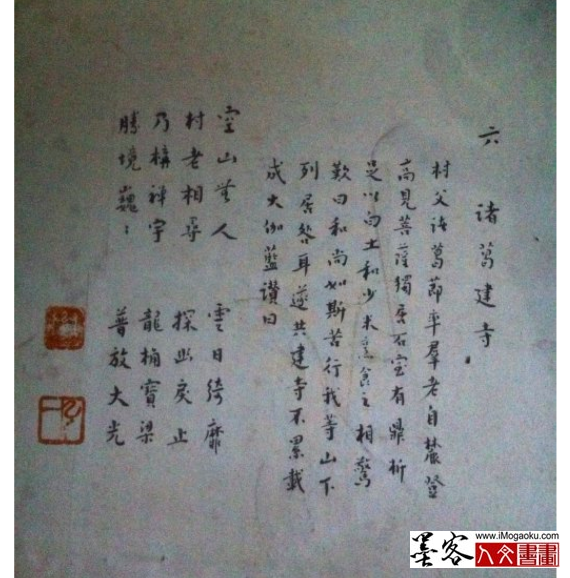 六 諸葛建寺
村父諸葛節率羣老自麓登
高見菩薩獨居石室有鼎折
足以白土和少米烹食之相驚
歎曰和尚如斯苦行我等山下
列居咎耳遂共建寺不累載
成大伽藍讚曰
空山無人 雲日綺靡
村老相尋 探此戾止
乃構禪宇 龍桷寶梁
勝境巍〻 普放大光
www.iMogaoku.com
墨客人文書畫